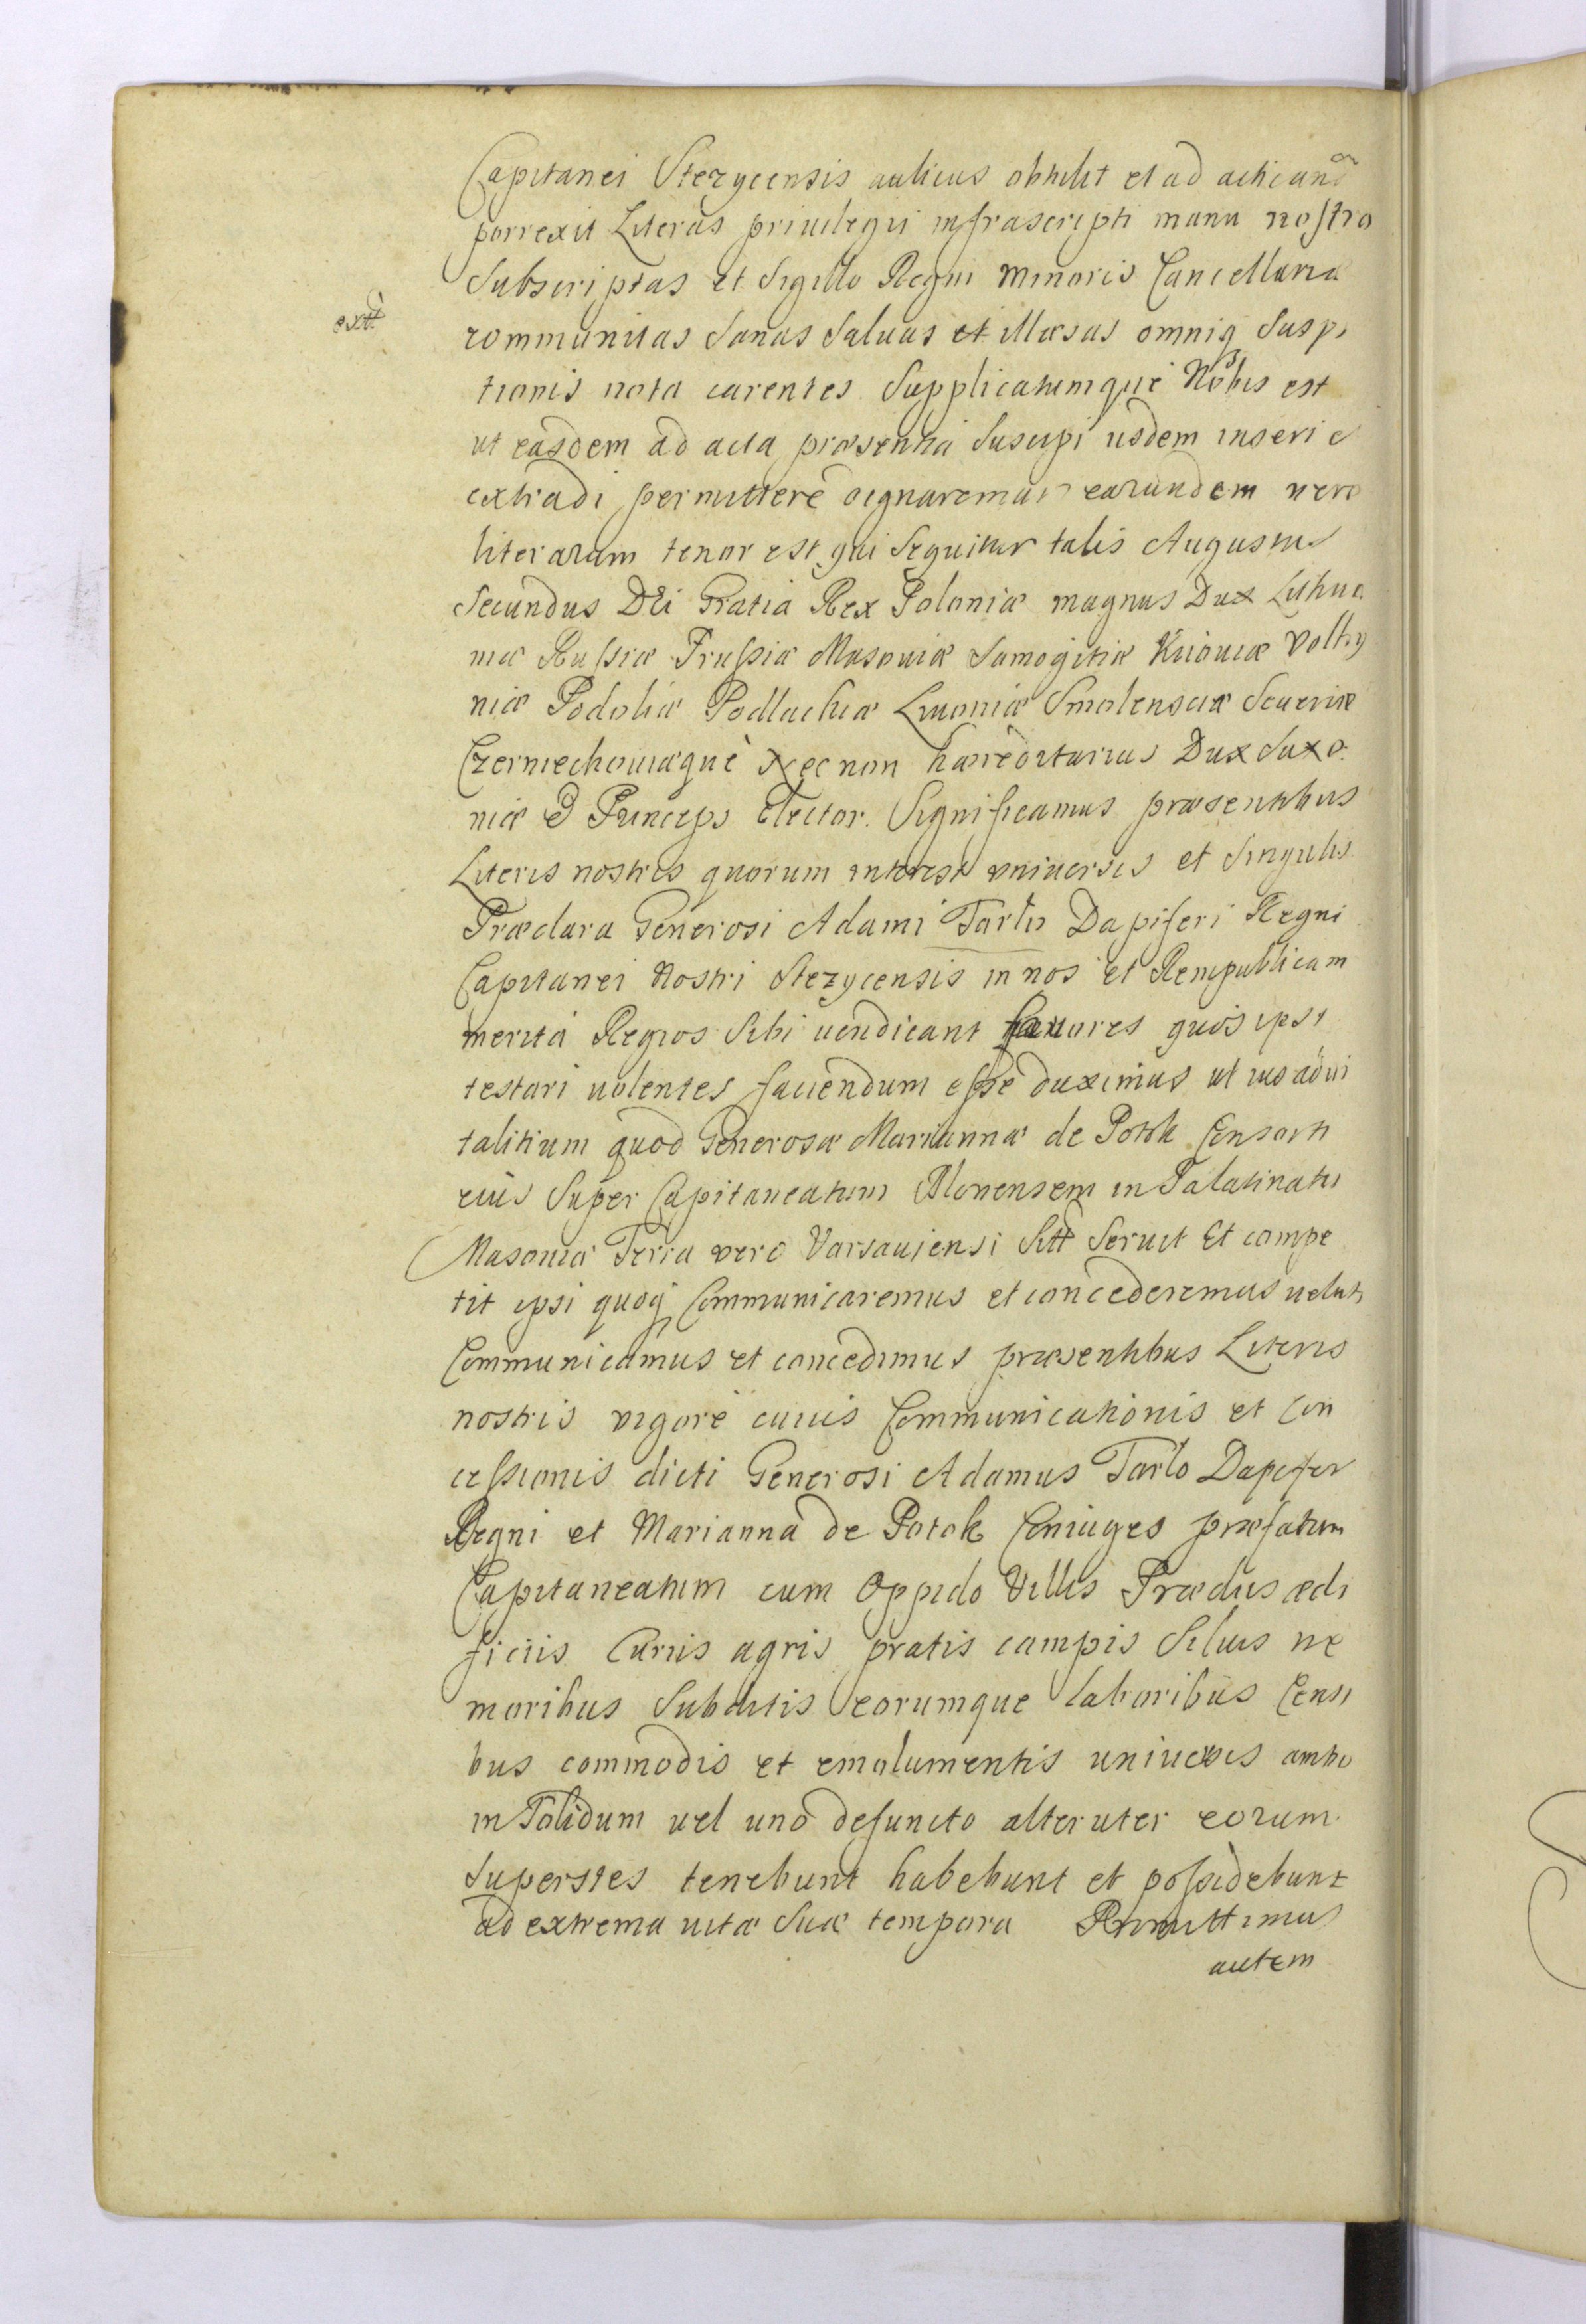 Capitanei Stezycensis aulicus obtulit et ad acticand
porrexit Literas priuilegii infrascripti manu nostra
Subscriptas et Sigillo Regni minoris Cancellariæ
extt
communitas Sanas Saluas et illæsas omniq Suspi
tionis nota carentes Supplicatumque Nobis est
ut easdem ad acta præsentia Suscipi iisdem inseri et
extradi permittere dignaremur earundem vero
literarum tenor est qui Sequitur talis Augustus
Secundus Dei Gratia Rex Poloniæ magnus Dux Lithua
niæ Russiæ Prussiæ Masouiæ Samogitiæ Kiiouiæ Volhy
niæ Podoliæ Podlachiæ Liuoniæ Smolensciæ Seueriæ
Czerniechouiæque Nec non hæreditarius Dux Saxo
niæ & Princeps Elector. Significamus præsentibus
Literis nostris quorum interest vniuersis et Singulis
Præclara Generosi Adami Tarło Dapiferi Regni
Capitanei Nostri Stezycensis in nos et Rempublicam
merita Regios Sibi uendicant fauores quos ipsi
testari uolentes faciendum esse duximus ut ius adui
talitium quod Generosæ Mariannæ de Potok Consorti
eius Super Capitaneatum Blonensem in Palatinatu
Masouiæ Terra vero Varsauiensi Sitt Seruit Et compe
tit ipsi quoq Communicaremus et concederemus uelut
Communicamus et concedimus præsentibus Literis
nostris vigore cuius Communicationis et Con
cessionis dicti Generosi Adamus Tarlo Dapifer
Regni et Marianna de Potok Coniuges præfatum
Capitaneatum cum Oppido Villis Prædiis ædi
ficiis Curiis agris pratis campis Siluis ne
moribus Subditis eorumque laboribus Censi
bus commodis et emolumentis uniuersis ambo
in Solidum uel uno defuncto alteruter eorum
Superstes tenebunt habebunt et possidebunt
ad extrema uitæ Suæ tempora Promittimus
autem